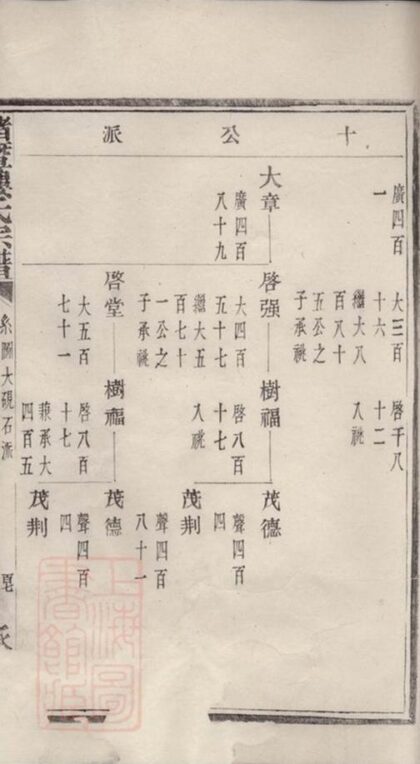 十公派
廣四百
一
大三百
十六
繼大八
百八十
五公之
子承祧
啓千八
十二
入祧
大章
廣四百
八十九
啓强
大四百
五十七
繼大五
百七十
一公之
子承祧
樹福
啓八百
十七
入祧
茂德
聲四百
四
茂荆
聲四百
八十一
啓堂
大五百
七十一
樹福
啓八百
十七
兼承大
四百五
茂德
聲四百
四
茂荆
系圖大硯石派
上海圖書館藏